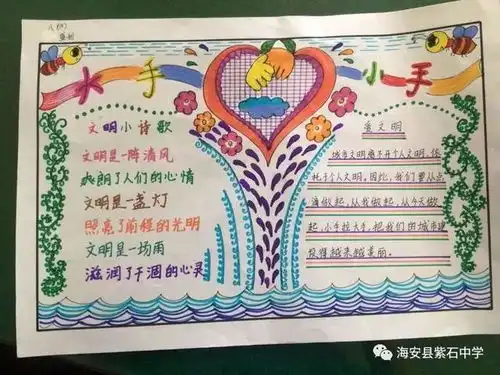 大手 小手
文明小诗歌
文明是一阵清风
爽朗了人们的心情
文明是一盏灯
照亮了前程的光明
文明是一场雨
滋润了干涸的心灵
爱文明
城市文明离不开个人文明,依
托于个人文明。因此,我们要从点
滴做起,从我做起,从今天做
起,小手拉大手,把我们的城市建
设得越来越美丽。
海安县紫石中学